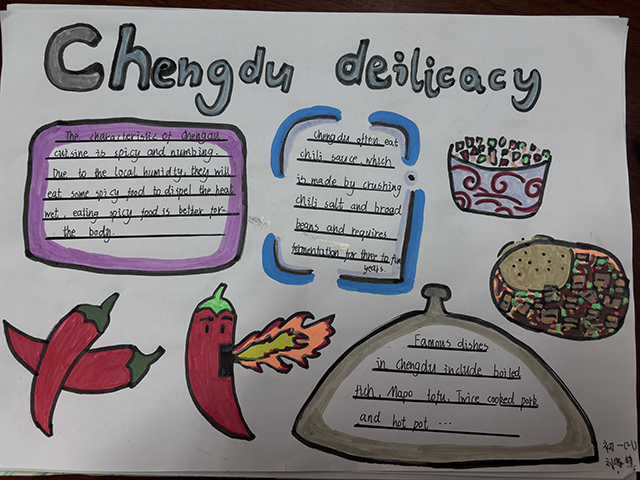 Chengdu deilicacy
The characteristic of Chengdu
cuisine is spicy and numbing.
Due to the local humidity, they will
eat some spicy food to dispel the heat
wet. eating spicy food is better for
the body.
Chengdu often eat
chili sauce, which
is made by crushing
chili salt and broad
beans and requires
fermentation for three to five
years.
Famous dishes
in Chengdu include boiled
fish, Mapo tofu, Twice cooked pork
and hot pot ...
初一(2)